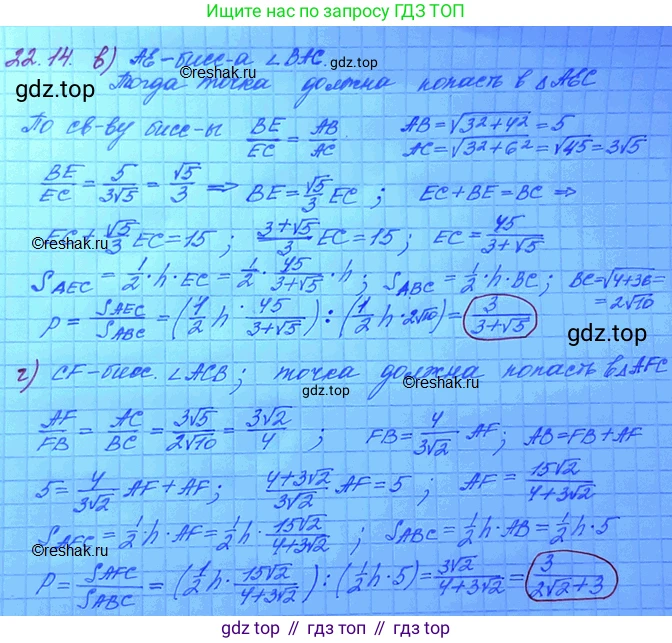 Ищите нас по запросу ГДЗ ТОП
22.14. в) АЕ-бисс-а ∠BAC.
©reshak.ru
gdz.top
Тогда точка должна попасть в △ABC
gdz.top
По св-ву бисс-ы BE/EC = AB/AC AB=√(3²+4²)=5
AC=√(3²+6²)=√45=3√5
BE/EC = 5/(3√5) = √5/3 ⇒ BE=√5/3 EC; EC+BE=BC ⇒
EC+√5/3 EC=15; (3+√5)/3 EC=15; EC=45/(3+√5)
©reshak.ru
©reshak.ru
S_AEC=1/2·h·EC=1/2·45/(3+√5)·h; S_ABC=1/2·h·BC; BC=√(4+36)=
=2√10
P=S_AEC/S_ABC=(1/2 h·45/(3+√5)):(1/2 h·2√10)=3/(3+√5)
gdz.top
gdz.top
г) CF-бисс. ∠ACB; точка должна попасть в △AFC
©reshak.ru
gdz.top
©reshak.ru
AF/FB=AC/BC=3√5/(2√10)=3√2/4; FB=4/(3√2) AF; AB=FB+AF
gdz.top
5=4/(3√2) AF+AF; (4+3√2)/(3√2) AF=5; AF=15√2/(4+3√2)
S_AFC=1/2 h·AF=1/2 h·15√2/(4+3√2); S_ABC=1/2 h·AB=1/2 h·5
©reshak.ru
©reshak.ru
P=S_AFC/S_ABC=(1/2 h·15√2/(4+3√2)):(1/2 h·5)=3√2/(4+3√2)=3/(2√2+3)
gdz.top
gdz.top // гдз.топ // gdz.top // гдз.топ